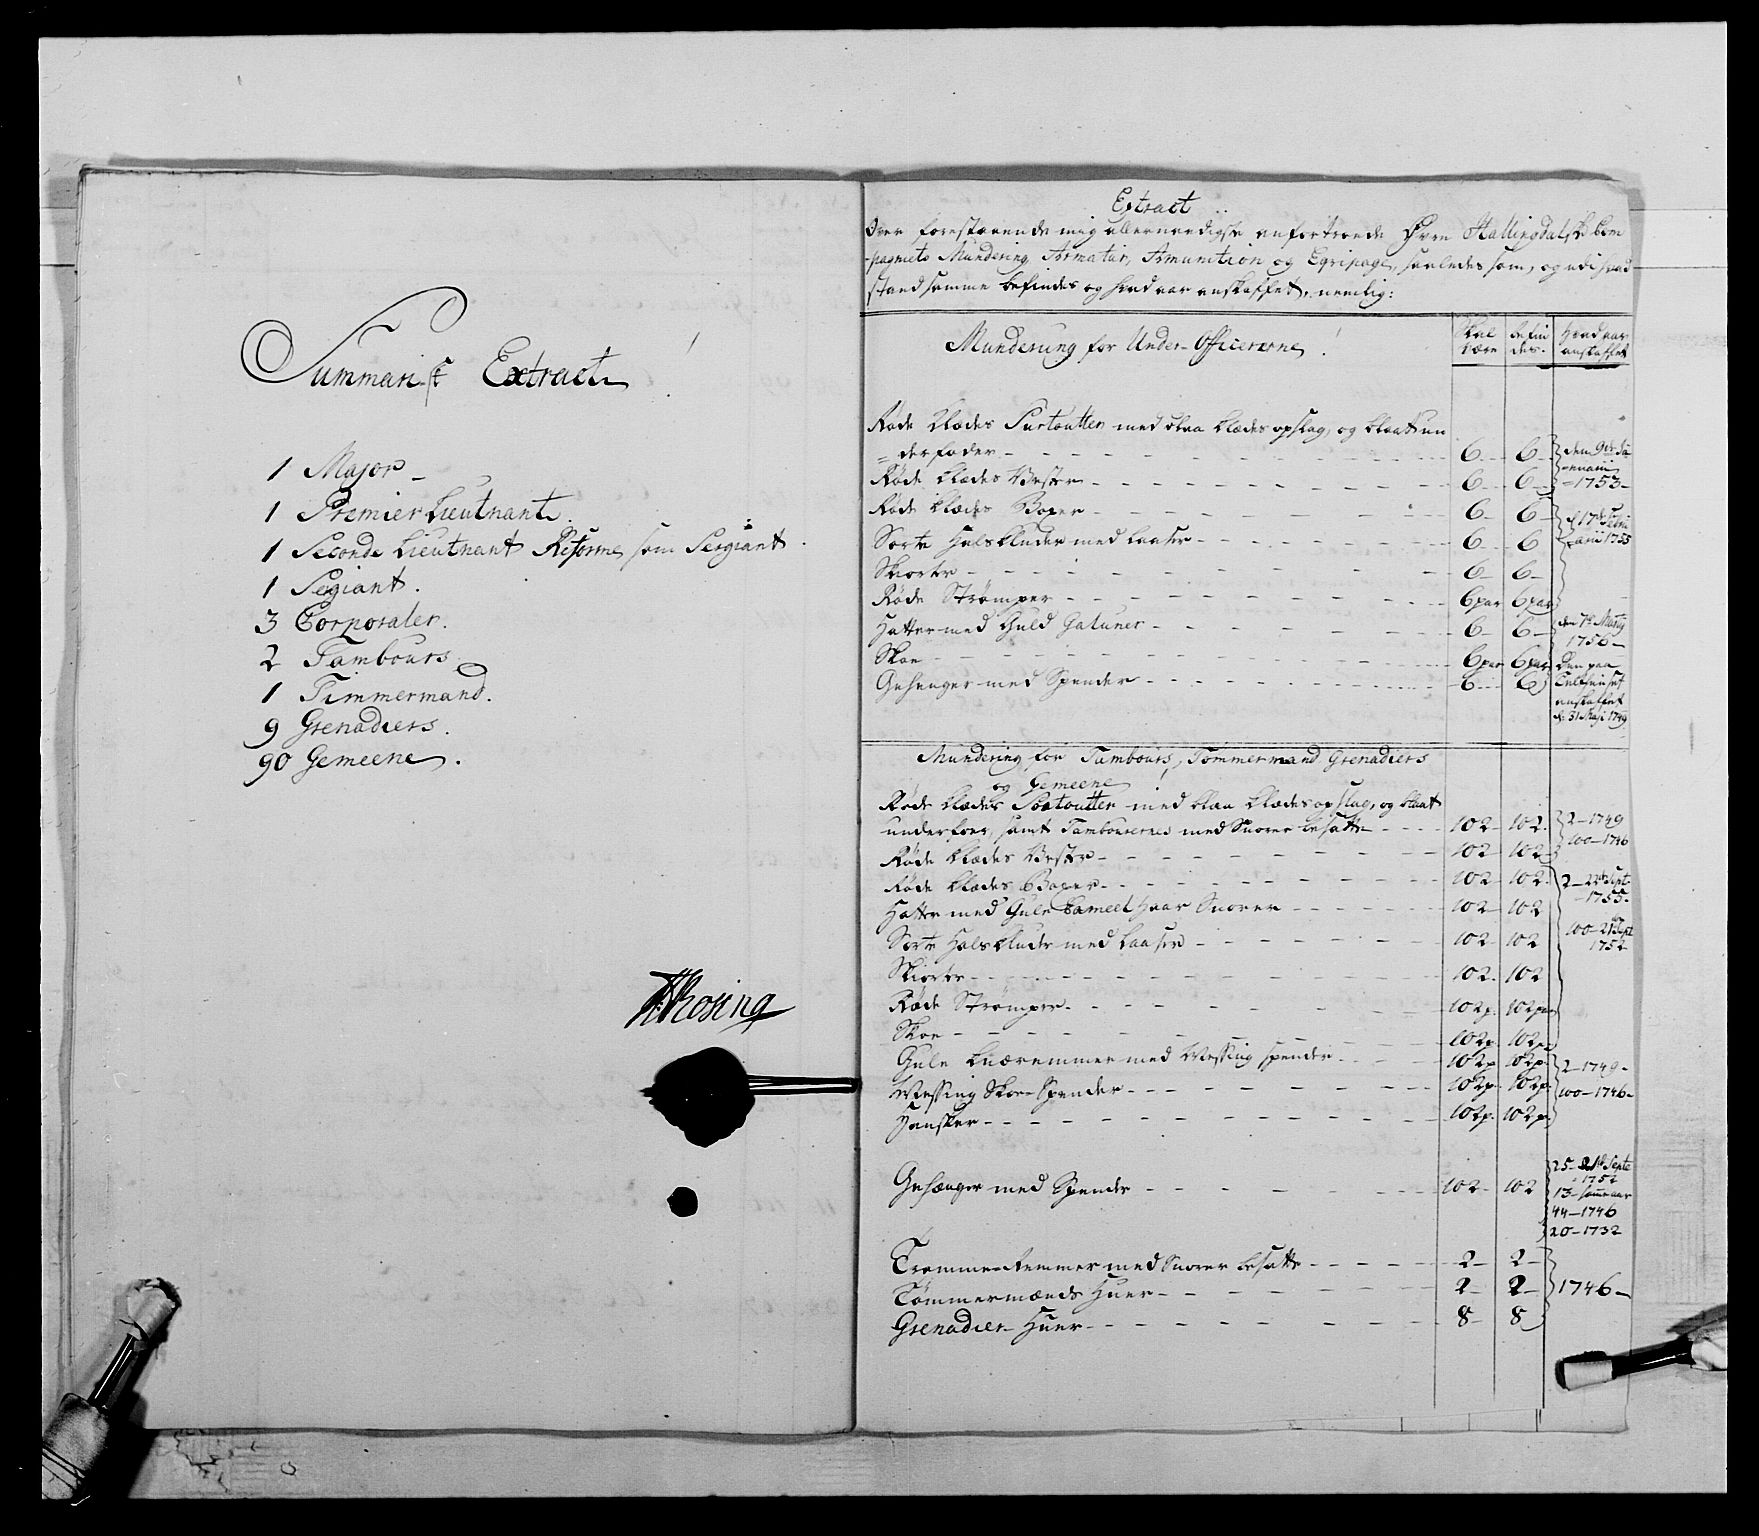 Summarisk Extract
1 Major
1 Premier Lieutnant.
1 Seconde Lieutnant Reforme som Sergiant.
1 Segiant.
3 Corporaler.
2 Tambours
1 Timmermand.
9 Grenadiers.
90 Gemeene.
HRosing
Extract
Over forestaaende mig allernaadigst anfortroede Øvre Hallingdalske Com
pagniets Mundering, Armatur, Amunition og Eqvipage, saaledes som, og udi hvad
stand samme befindes og hvad aar anskaffet, nemlig:
Mundering for Under-Officererne
Skal være
befindes.
Hvad aar anskaffet
Røde Klædes Surtoutter med blaa Klædes opslag, og blaat un
=derfoder 6 6 den 9de Ja
nuarii
Røde Klædes Vester 6 6 1753
Røde Klædes Boxer 6 6 d 17de Febru
Sorte Halsklude med Laaser 6 6 arii 1755
Skiorter 6 6
Røde Strømper 6 par 6 par
Hatter med Guld Galuner 6 6 den 7de Martij
1756
Skoe 6 par 6 par
Gehenger med Spender 6 6
anskaffet
d. 31 Maji 1749
Mundering for Tambours, Tømmermænd Grenadiers
og Gemeene
Røde Klædes Surtoutter med blaa Klædes opslag, og blaat
underfoer, samt Tambourernes med Snorer besatte 102 102. 2-1749
100-1746
Røde Klædes Vester 102 102
Røde Klædes Boxer 102 102. 2-22de Sept.
1755.
Hatter med Gule Cameel Haar Snorer 102 102
100-21de Sept
Sorte Halsklude med Laaser 102 102 1752
Skiorter 102. 102
Røde Strømper 102 p. 102 par
Skoe 102 p. 102 par
Gule Knæremmer med Messing spender 102 p. 102 p. 2-1749
Messing Skoe-Spender 102 p. 102 p. 100-1746
Hansker 102 p. 102 p.
25-21de Septe
1752
Gehænger med Spender 102 102 13- samme aar
44-1746
20-1732
Tromme-Remmer med Snorer besatte 2 2
Tømmermænds Huer 2 2 1746
Grenadier-Huer 8 8